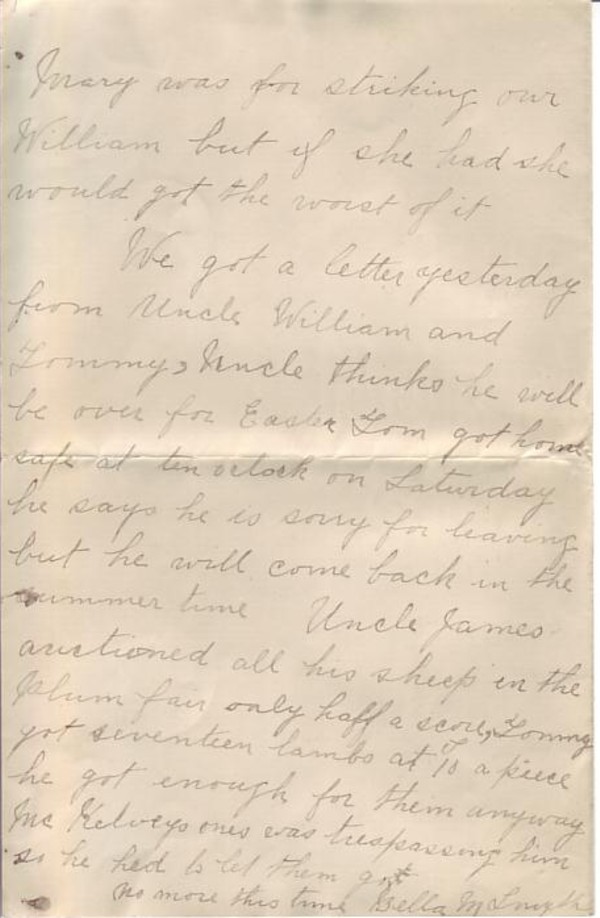 Mary was for striking our
William but if she had she
would got the worst of it
We got a letter yesterday
from Uncle William and
Tommy, Uncle thinks he will
be over for Easter Tom got home
safe at ten oclock on Saturday
he says he is sorry for leaving
but he will come back in the
summer time Uncle James
auctioned all his sheep in the
Plum fair only half a score, Tommy
got seventeen lambs at a piece
he got enough for them anyway
Mc Kelveys ones was trespassing him
so he had to let them
no more this time Bella M Smyth